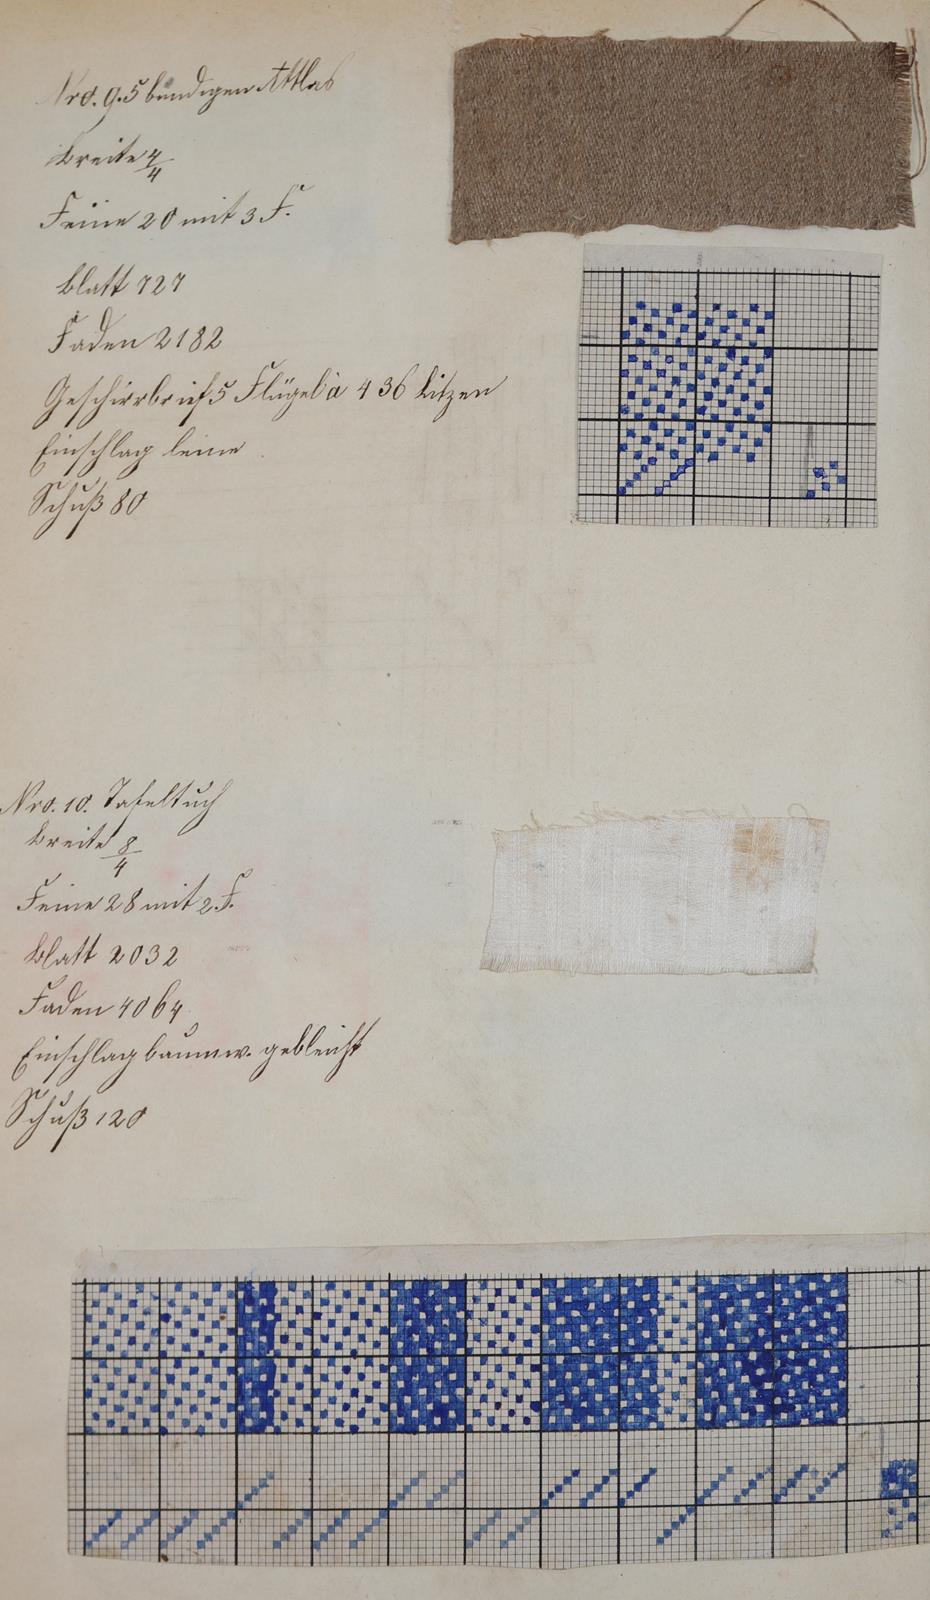 Nro. 9. 5 bendigen Attlas
breite 4/4
Feine 20 mit 3 F.
blatt 727
Faden 2182
Geschirrbrief 5 Flügel à 436 Litzen
Einschlag leine
Schuß 80
Nro. 10. Tafeltuch
breite 8/4
Feine 28 mit 2 F.
blatt 2032
Faden 4064
Einschlag baumw. gebleicht
Schuß 120